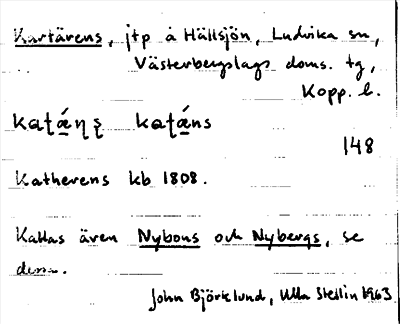 Kartärens, jtp å Hällsjön, Ludvika sn,
Västerbergslags doms. tg,
Kopp. l.
kaʈä́ɳʂ kaʈä́ns
148
Katherens kb 1808.
Kallas även Nybons och Nybergs, se
dessa.
John Björklund, Ulla Stellin 1963